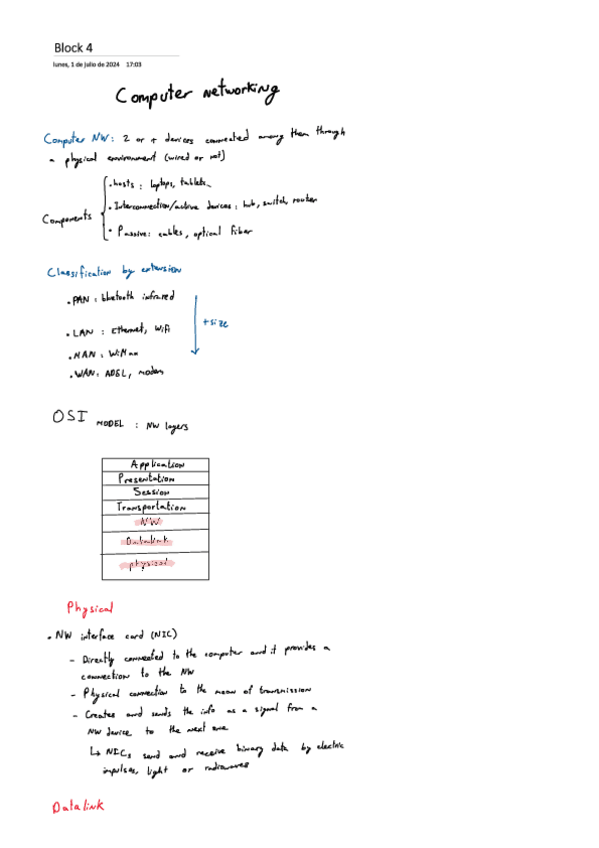 Block 4
lunes, 1 de julio de 2024 17:03
Computer networking
Computer NW: 2 or + devices connected among them through
a physical environment (wired or not)
Components
• hosts: laptops, tablets
• Interconnection/active devices: hub, switch, router
• Passive: cables, optical fiber
Classification by extension
• PAN: bluetooth infrared
• LAN: Ethernet, Wifi
• MAN: WiMax
• WAN: ADSL, modem
+ size
OSI MODEL: NW layers
Application
Presentation
Session
Transportation
NW
Datalink
physical
Physical
• NW interface card (NIC)
- Directly connected to the computer and it provides a
connection to the NW
- Physical connection to the mean of transmission
- Creates and sends the info as a signal from a
NW device to the next one
↳ NICs send and receive binary data by electric
impulses, light or radiowaves
Datalink